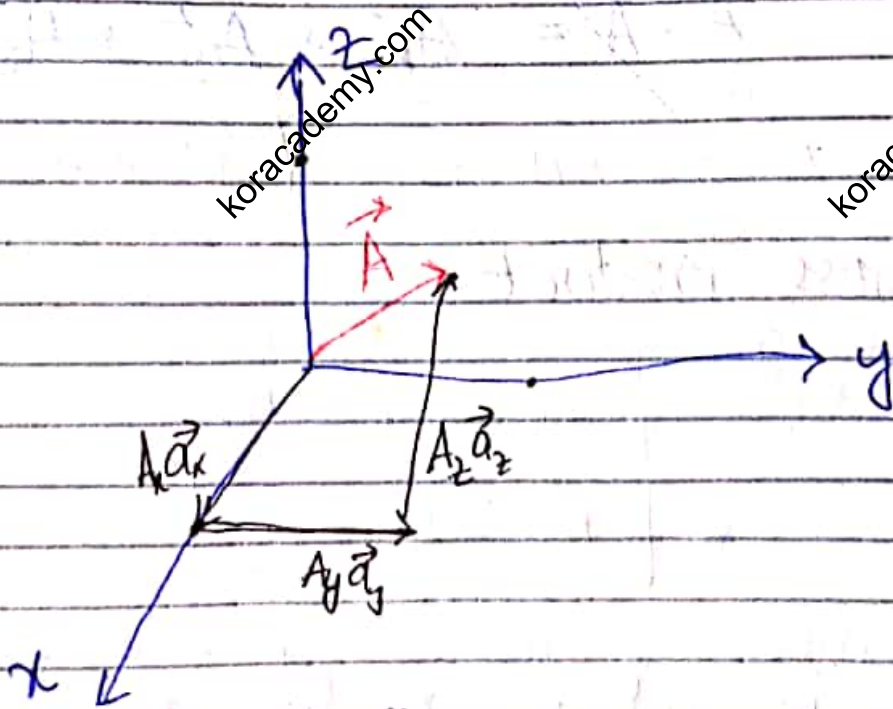 z
koracademy.com
korac
A⃗
y
Aₓa⃗ₓ
A_z a⃗_z
A_y a⃗_y
x